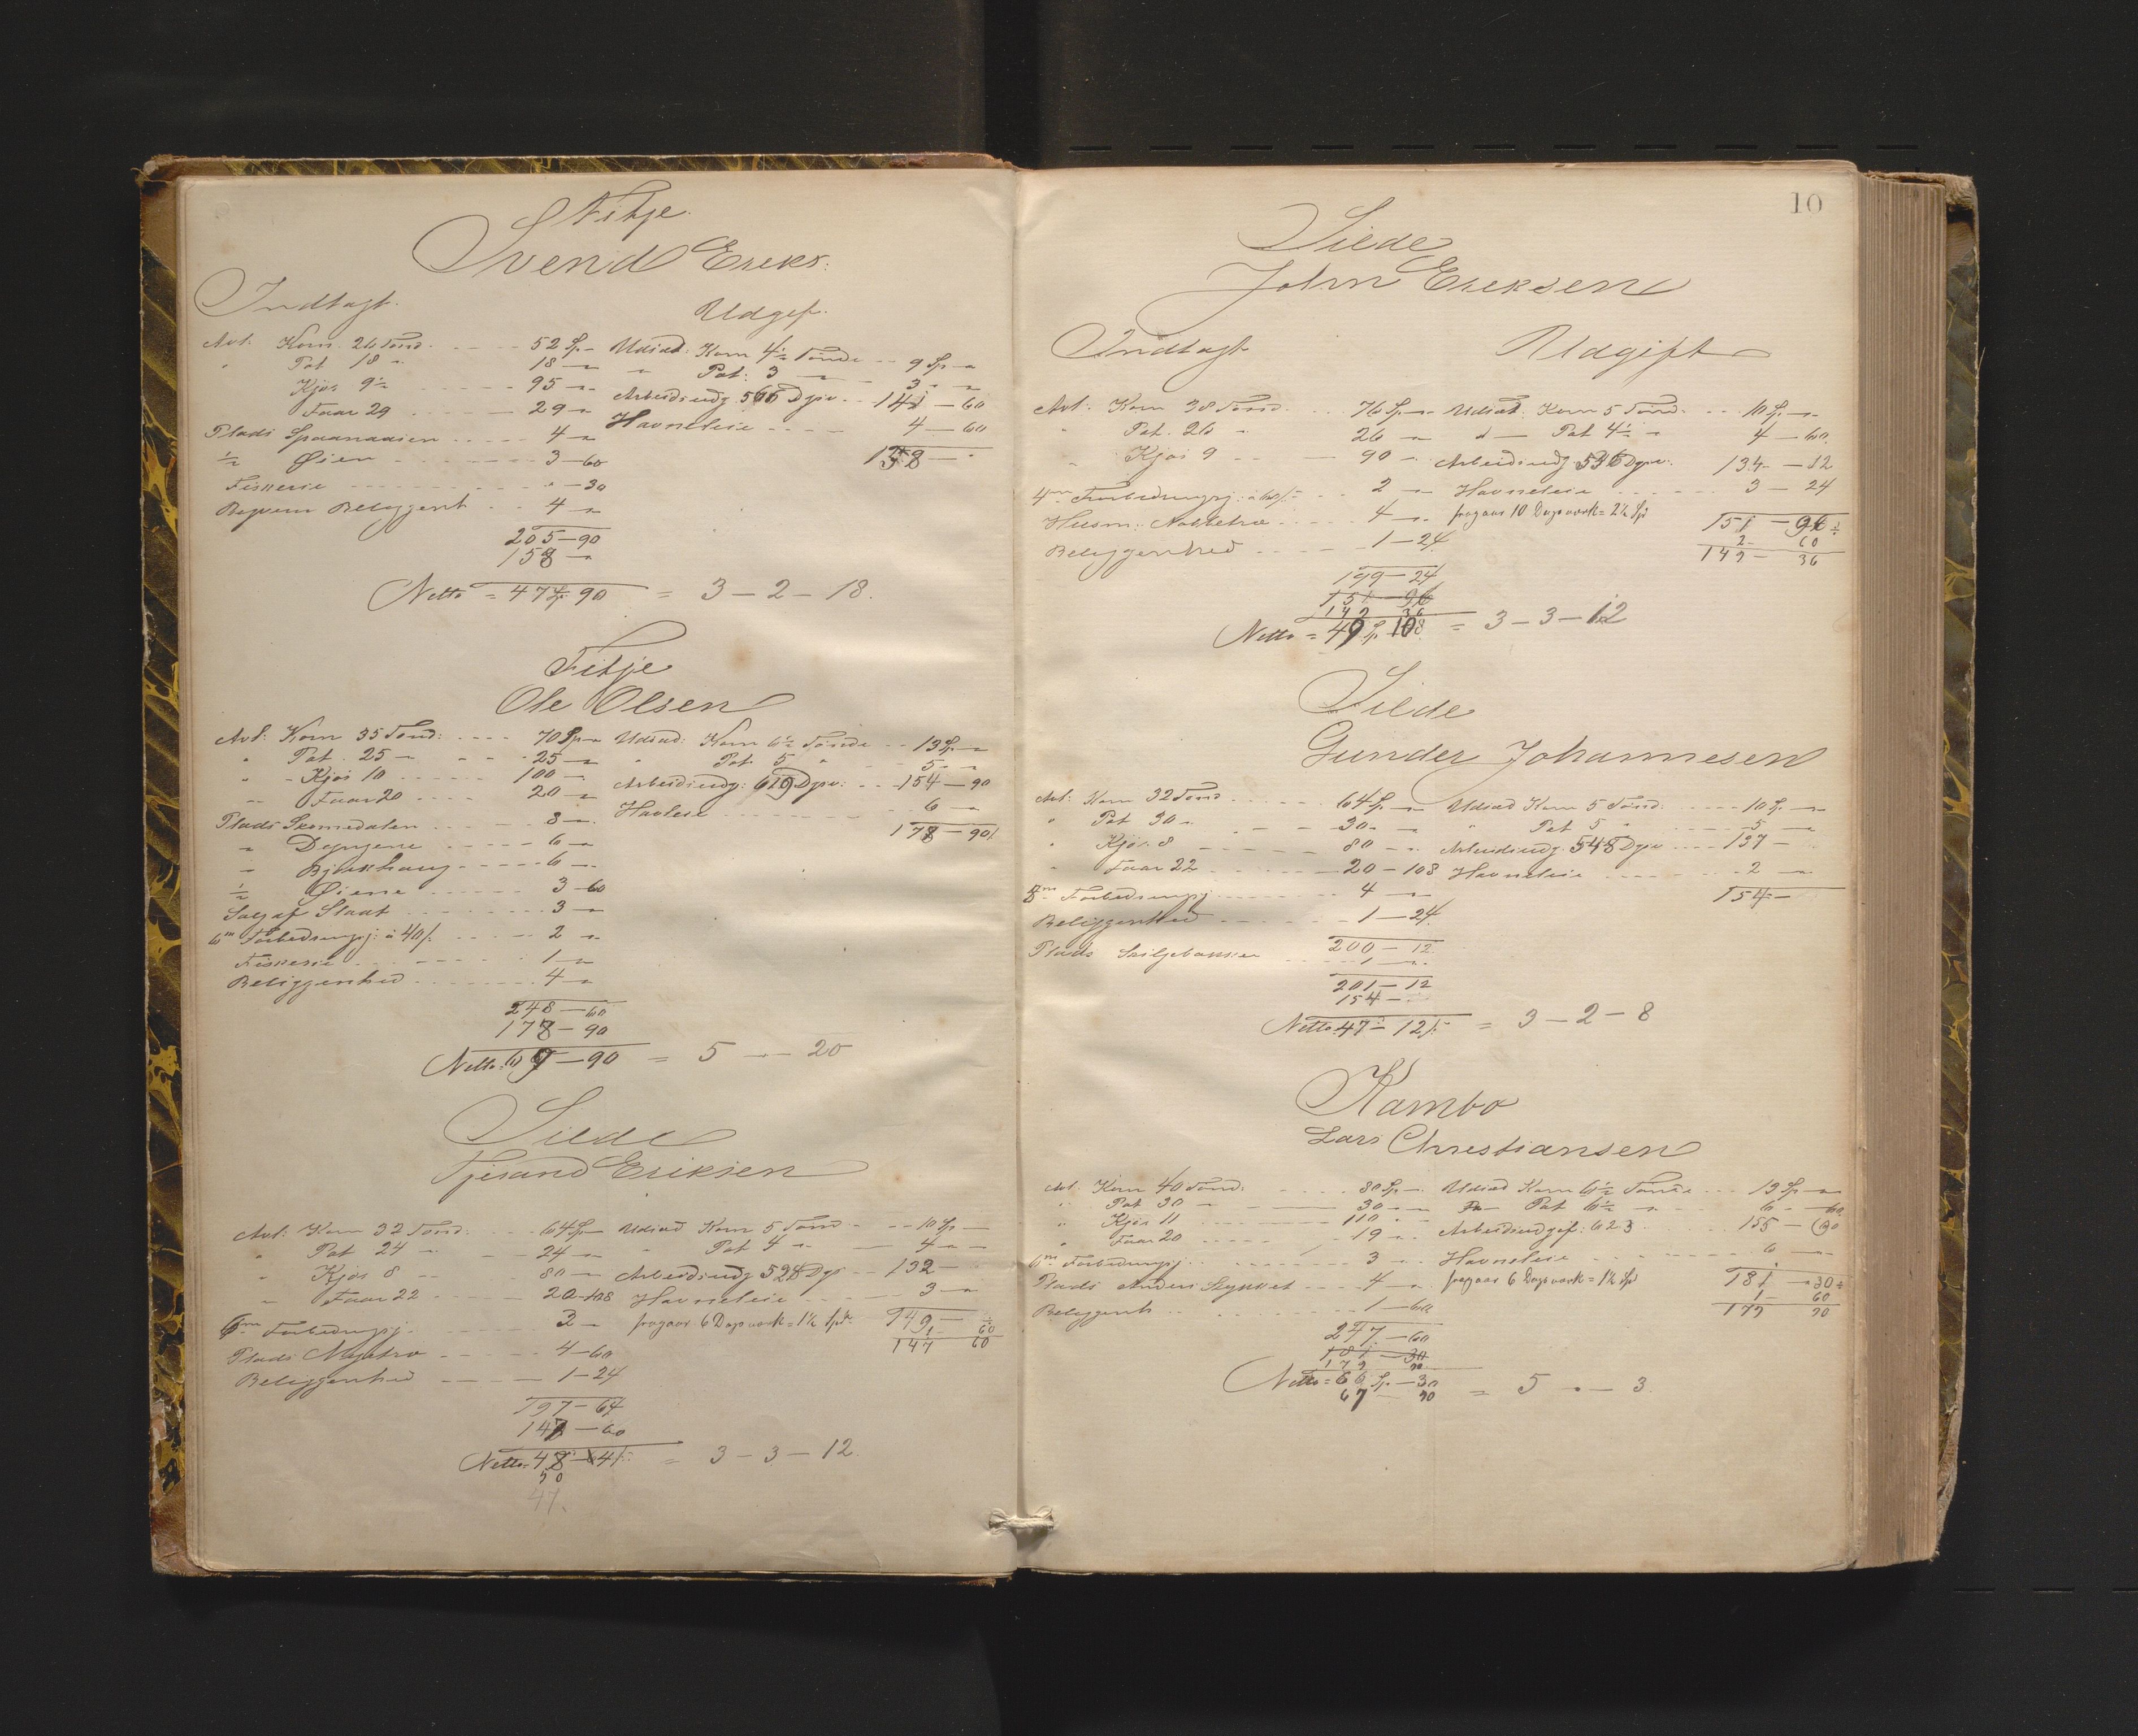 Fitje.
Svend Ereks:
Indtægt.
Udgif.
Avl: Korn 26 Tönd. 52 Sp - Udsæd: Korn 4½ Tönde 9 Sp "
" Pot 18 " 18 - " " Pot: 3 " 3 " "
Kjör 9½ 95 " Arbeidsudg 566 Dgsv. 141 - 60
Faar 29 29 " Havneleie 4 - 60
Plads Spaanaasien 4 " 158 - "
½ Øien 3 - 60
Fiskerie " - 30
Beqvem Beliggenh 4 "
205 - 90
158 - "
Netto = 47 Sp. 90 = 3 - 2 - 18.
Fitje
Ole Olsen
Avl: Korn 35 Tönd: 70 Sp " Udsæd: Korn 6½ Tönde 13 Sp "
" Pot 25 " 25 " " Pot 5 " 5 " "
" Kjör 10 100 " Arbeidsudg: 619 Dgsv: 154 - 90
" Faar 20 20 " Havleie 6 "
Plads Skomedalen 8 " 178 - 90
" 6 "
" Bjørkhaug 6 "
½ Øiene 3 - 60
Salg af Slaat 3 "
6 m Forbedringsj: á 40/. 2 "
Fiskerie 1 "
Beliggenhed 4 "
248 - 60
178 - 90
Netto: 69 - 90 = 5 - " - 20
Silde
Tjerand Eriksen
Avl: Korn 32 Tönd. 64 Sp - Udsæd Korn 5 Tönd 10 Sp -
" Pot 24 " 24 " " Pot 4 " 4 " -
" Kjör 8 80 " Arbeidsudg 528 Dgs 132 -
" Faar 22 20 - 108 Havneleie 3 "
6 m Forbedringsj. 2 - fragaar 6 Dagsværk = 1½ Spd. 149 - "
Plads Nygtro 4 - 60 1 - 60
Beliggenhed 1 - 24 147 60
197 - 64
147 - 60
Netto: 48 - 64 = 3 - 3 - 12.
50
47.
10
Silde
John Ereksen
Indtægt
Udgift
Avl: Korn 38 Tönd. 76 Sp " Udsæd: Korn 5 Tönd. 10 Sp "
" Pot. 26 " 26 " d - Pot 4½ " 4 - 60.
" Kjör 9 90 " Arbeidsudg 536 Dgsv: 134 - 12
4 m Forbedringsj: á 60/. 2 " Havneleie 3 - 24
Husm: 4 " fragaar 10 Dagsværk = 2½ Spd 151 - 96
Beliggenhed 1 - 24 2 - 60
149 - 36
199 - 24
151 - 96
149 36
Netto = 49 Sp. 108 = 3 - 3 - 12
Silde
Gunder Johannesen
Avl: Korn 32 Tönd 64 Sp " Udsæd Korn 5 Tönd: 10 Sp "
" Pot 30 " 30 " " Pot 5 " 5 "
" Kjör 8 80 " Arbeidsudg. 548 Dgsv 137 -
" Faar 22 20 - 108 Havneleie 2 "
8 m Forbedringsj 4 " 154 -
Beliggenhed 1 - 24
200 - 12
Plads Seiljebakken 1 "
201 - 12
154 -
Netto 47 - 12/. = 3 - 2 - 8
Kambo
Lars Chrestiansen
Avl. Korn 40 Tönd. 80 Sp - Udsæd Korn 6½ Tönde 13 Sp "
" Pot 30 30 " Pot 6½ " 6 - 60
" Kjör 11 110 " Arbeidsudgif. 623 155 - 90
" Faar 20 19 " Havneleie 6 "
6 m Forbedringsj. 3 " fragaar 6 Dagsværk = 1½ Spd 181 - 30
Plads Anders Stykket 4 " 1 - 60
Beliggenh 1 - 60 179 90
247 - 60
181 - 30
179 90
Netto = 66 Sp - 30
67 90 = 5 " - 3.